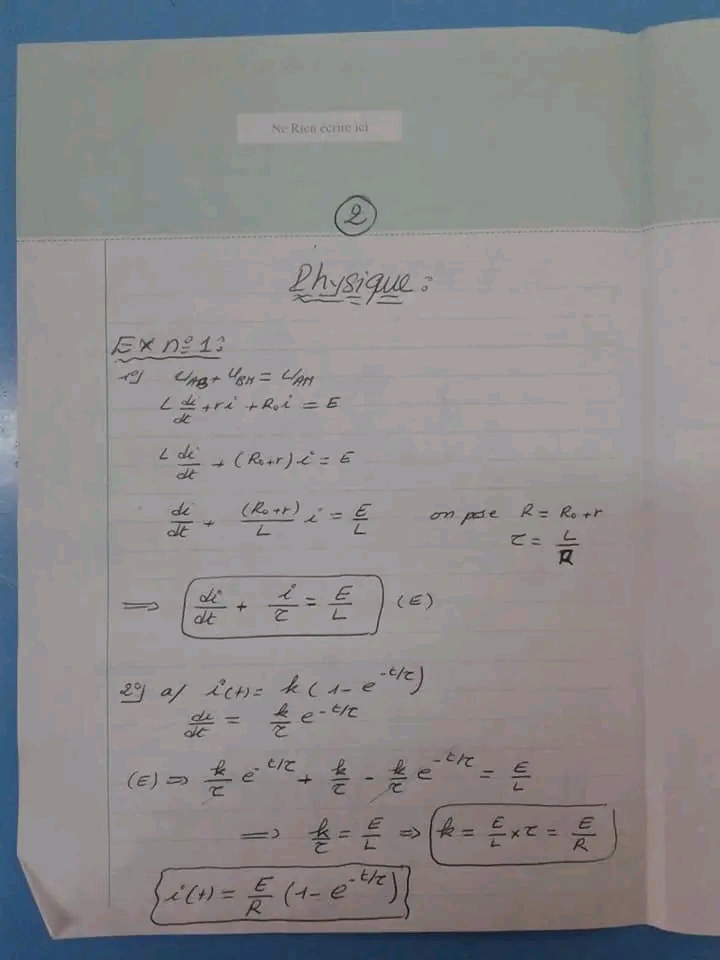 Ne Rien écrire ici
2
Physique :
Ex n° 1 :
1°) u_AB + u_BM = u_AM
L di/dt + ri + R₀i = E
L di/dt + (R₀+r) i = E
di/dt + (R₀+r)/L i = E/L on pose R = R₀+r
τ = L/R
⟹ di/dt + i/τ = E/L (E)
2°) a/ i(t) = k(1 - e^(-t/τ))
di/dt = k/τ e^(-t/τ)
(E) ⟹ k/τ e^(-t/τ) + k/τ - k/τ e^(-t/τ) = E/L
⟹ k/τ = E/L ⟹ k = E/L × τ = E/R
i(t) = E/R (1 - e^(-t/τ))